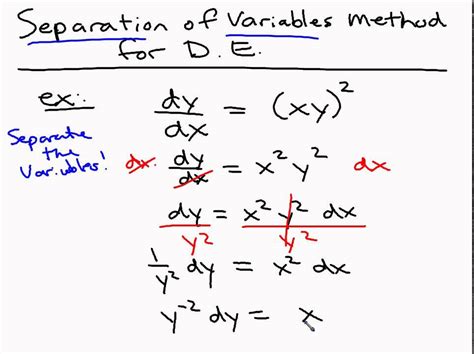 Separation of Variables Method
for D.E.
ex:
dy/dx = (xy)²
Separate
the
Variables!
dx · dy/dx = x² y² dx
dy/y² = x² y² dx/y²
1/y² dy = x² dx
y⁻² dy = x